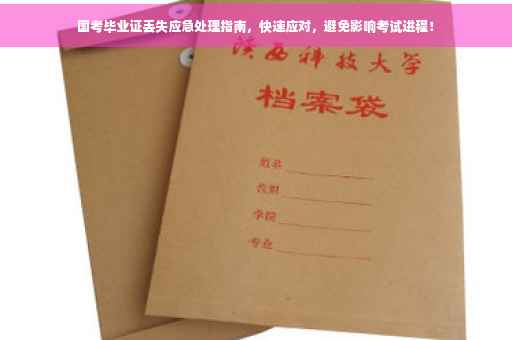 国考毕业证丢失应急处理指南，快速应对，避免影响考试进程！
陕西科技大学
档案袋
姓名
学院
专业